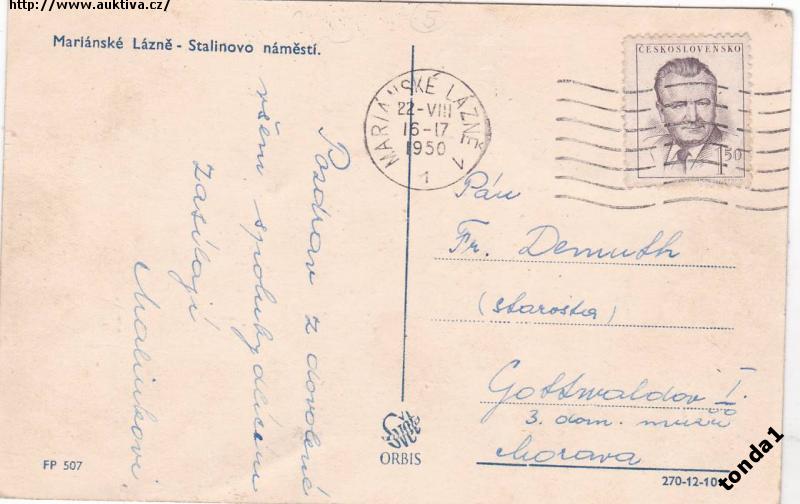 http://www.auktiva.cz/
5
Mariánské Lázně - Stalinovo náměstí.
ČESKOSLOVENSKO
1.50
MARIÁNSKÉ LÁZNĚ 1
22-VIII
16-17
1950
1
Pozdrav z dovolené
všem spolubydlícím
zasílají
Malinkovi
Pán
Fr. Demuth
(starosta)
Gottwaldov I.
3. dom.
Morava
FP 507
ORBIS
270-12-10
tonda1